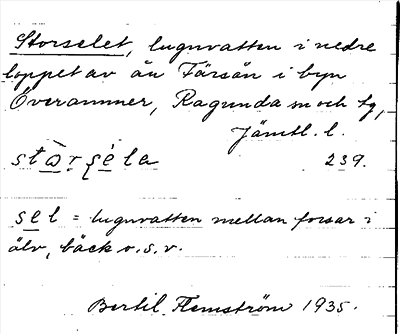 Storselet, lugnvatten i nedre
loppet av ån Färsån i byn
Överammer, Ragunda sn och tg,
Jämtl. l.
239.
sel = lugnvatten mellan forsar i
älv, bäck o.s.v.
Bertil Flemström 1935.